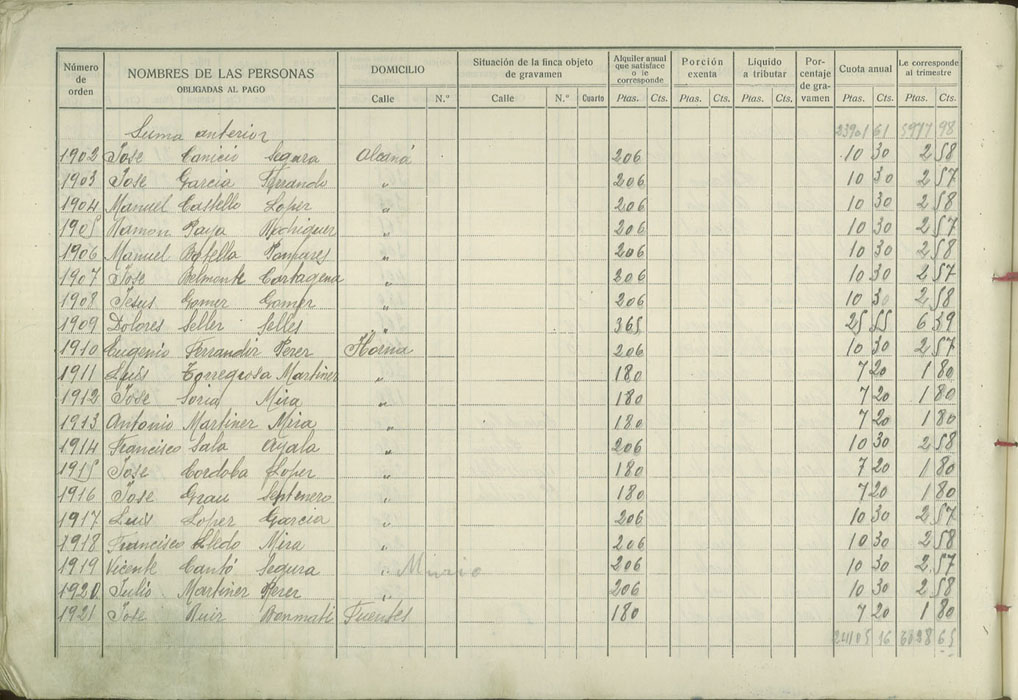 Número de orden NOMBRES DE LAS PERSONAS OBLIGADAS AL PAGO DOMICILIO Situación de la finca objeto de gravamen Alquiler anual que satisface o le corresponde Porción exenta Líquido a tributar Por-centaje de gra-vamen Cuota anual Le corresponde al trimestre
Calle N.º Calle N.º Cuarto Ptas. Cts. Ptas. Cts. Ptas. Cts. Ptas. Cts. Ptas. Cts.
Suma anterior 23901 61 5977 98
1902 Jose Canicio Segura Alcaná 206 10 30 2 58
1903 Jose Garcia Ferrando " 206 10 30 2 57
1904 Manuel Castello Loper " 206 10 30 2 58
1905 Ramon Paya Rodriguer " 206 10 30 2 57
1906 Manuel Botella Pomares " 206 10 30 2 58
1907 Jose Belmonte Cartagena " 206 10 30 2 57
1908 Jesus Gomer Gomer " 206 10 30 2 58
1909 Dolores Seller Selles " 365 25 55 6 39
1910 Eugenio Ferrandir Perer Horna 206 10 30 2 57
1911 Luis Torregrosa Martiner " 180 7 20 1 80
1912 Jose Soria Mira " 180 7 20 1 80
1913 Antonio Martiner Mira " 180 7 20 1 80
1914 Francisco Sala Ayala " 206 10 30 2 58
1915 Jose Cordoba Loper " 180 7 20 1 80
1916 Jose Grau Septenero " 180 7 20 1 80
1917 Luis Loper Garcia " 206 10 30 2 57
1918 Francisco Lledo Mira " 206 10 30 2 58
1919 Vicente Cantó Segura " 206 10 30 2 57
1920 Julio Martiner Perer " 206 10 30 2 58
1921 Jose Ruir Bonmati Fuentes 180 7 20 1 80
24105 16 65